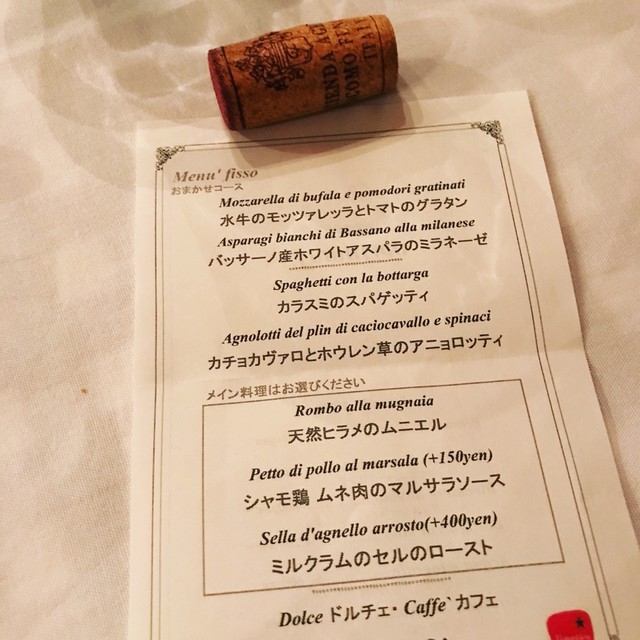 IENDA AG
COMO FEN
ITALI
Menu' fisso
おまかせコース
Mozzarella di bufala e pomodori gratinati
水牛のモッツァレッラとトマトのグラタン
Asparagi bianchi di Bassano alla milanese
バッサーノ産ホワイトアスパラのミラネーゼ
Spaghetti con la bottarga
カラスミのスパゲッティ
Agnolotti del plin di caciocavallo e spinaci
カチョカヴァロとホウレン草のアニョロッティ
メイン料理はお選びください
Rombo alla mugnaia
天然ヒラメのムニエル
Petto di pollo al marsala (+150yen)
シャモ鶏 ムネ肉のマルサラソース
Sella d'agnello arrosto(+400yen)
ミルクラムのセルのロースト
Dolce ドルチェ・ Caffe` カフェ